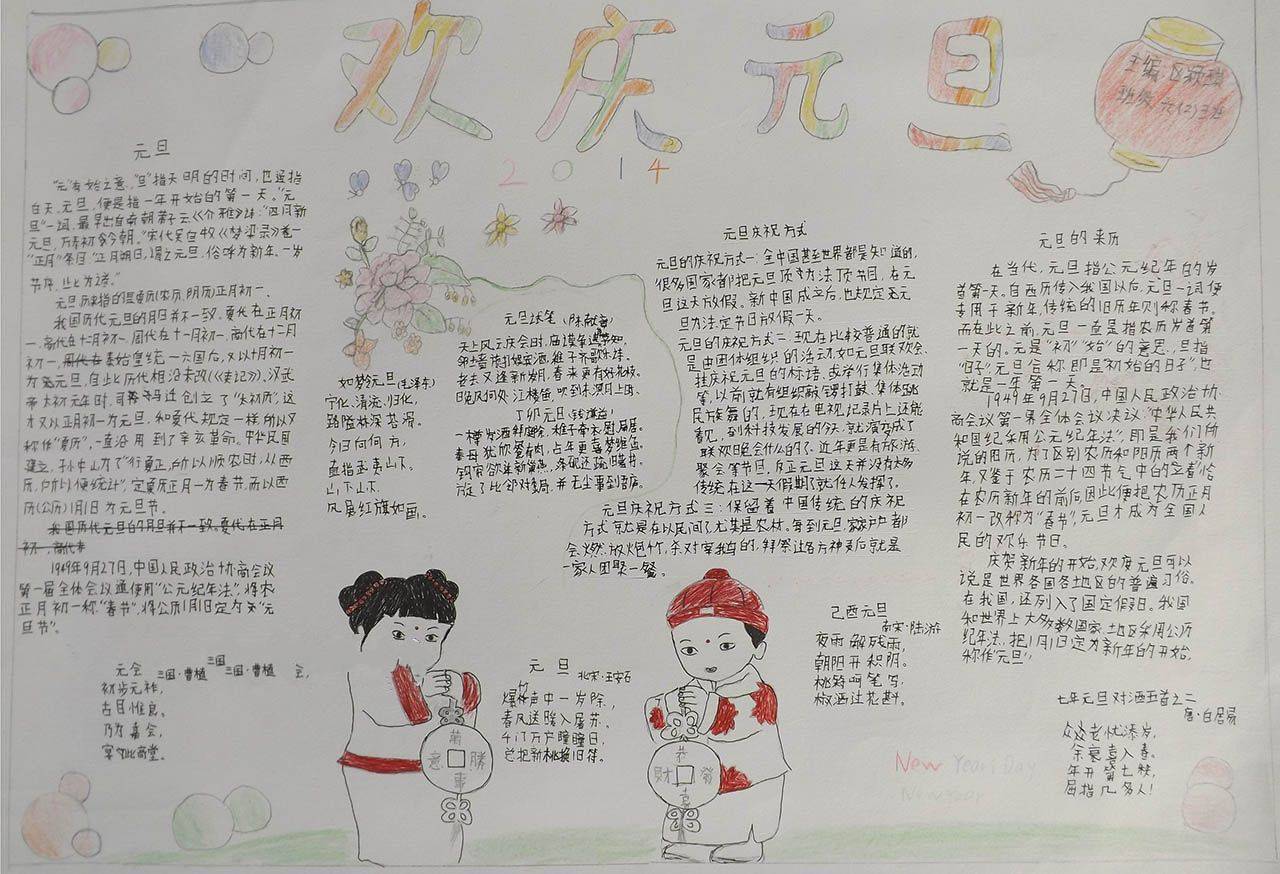 欢庆元旦
2014
主编 区颖琪
班级 六(2)班
元旦
"元"有始之意,"旦"指天明的时间,也通指
白天。元旦,便是指一年开始的第一天。"元
旦"一词,最早出自南朝萧子云《介雅》诗:"四气新
元旦,万寿初今朝。"宋代吴自牧《梦粱录》卷一
"正月"条目:"正月朔日,谓之元旦,俗呼为新年。一岁
节序,此为之首。"
元旦历来指的是夏历(农历、阴历)正月初一。
我国历代元旦的月日并不一致。夏代在正月初
一,商代在十二月初一,周代在十一月初一,商代在十二月
初一,周代在秦始皇统一六国后,又以十月初一
为元旦,自此历代相沿未改(《史记》)。汉武
帝太初元年时,司马迁创立了"太初历",这
才又以正月初一为元旦,和夏代规定一样,所以又
称作"夏历",一直沿用到了辛亥革命。中华民国
建立,孙中山为了"行夏正,所以顺农时,从西
历,所以便统计",定夏历正月一为春节,而以西
历(公历)1月1日为元旦节。
我国历代元旦的月日并不一致。夏代在正月
初一,商代
1949年9月27日,中国人民政治协商会议
第一届全体会议通使用"公元纪年法",将农
正月初一称"春节",将公历1月1日定为"元
旦节"。
元会
三国·曹植
三国
三国·曹植
会,
初步元祚,
古日惟良。
乃为嘉会,
宴此高堂。
如梦令·元旦(毛泽东)
宁化、清流、归化,
路隘林深苔滑。
今日向何方,
直指武夷山下。
山下山下,
风展红旗如画。
元旦试笔(陈献章)
天上风云庆会时,庙谟争遣草茅知。
邻墙旋打娱宾酒,稚子齐歌乐岁诗。
老去又逢新岁月,春来更有好花枝。
晚风何处江楼笛,吹到东溟月上时。
丁卯元旦(钱谦益)
一樽岁酒拜庭除,稚子牵衣慰屏居。
奉母犹欣餐有肉,占年更喜梦维鱼。
钩帘欲迎新燕,涤砚还疏旧著书。
旋了比邻对傍局,并无尘事到吾庐。
元旦庆祝方式
元旦的庆祝方式一:全中国甚至世界都是知道的,
很多国家都把元旦顶为办法顶节目,在元
旦这天放假。新中国成立后,也规定元元
旦为法定节日放假一天。
元旦的庆祝方式二:现在比较普通的就
是由团体组织的活动,如元旦联欢会、
挂庆祝元旦的标语、或举行集体活动
等,以前就有组织敲锣打鼓、集体跳
民族舞的,现在在电视记录片上还能
看见,到科技发展的今天,就演变成了
联欢晚会什么的了。近年更是有旅游、
聚会等节目,反正元旦这天并没有太多
传统在这一天假期了就任人发挥了。
元旦庆祝方式三:保留着中国传统的庆祝
方式就是在以民间了,尤其是农村。每到元旦,家家户户都
会燃放炮竹,杀对宰鹅的,拜祭过各方神灵后就是
一家人团聚一餐。
元旦
北宋·王安石
爆竹声中一岁除,
春风送暖入屠苏。
千门万户曈曈日,
总把新桃换旧符。
己酉元旦
南宋·陆游
夜雨解残雨,
朝阳开积阴。
桃符呵笔写,
椒酒过花斟。
元旦的来历
在当代,元旦指公元纪年的岁
首第一天。自西历传入我国以后,元旦一词便
专用于新年,传统的旧历年则称春节。
而在此之前,元旦一直是指农历岁首第
一天的。元是"初""始"的意思,旦指
"日子",元旦合称即是"初始的日子",也
就是一年第一天。
1949年9月27日,中国人民政治协
商会议第一界全体会议决议:"中华人民共
和国纪年用公元纪年法",即是我们所
说的阳历,为了区别农历和阳历两个新
年,又鉴于农历二十四节气中的"立春"恰
在农历新年的前后,因此便把农历正月
初一改称为"春节",元旦才成为全国人
民的欢乐节日。
庆贺新年的开始,欢度元旦可以
说是世界各国各地区的普遍习俗。
在我国,还列入了国定假日。我国
和世界上大多数国家、地区采用公历
纪年法,把1月1日定为新年的开始,
称作"元旦"。
七年元旦对酒五首之二
唐·白居易
众老忧添岁,
余衰喜入春。
年开第七秩,
屈指几多人!
New Years Day
New year
意 萬 勝 事
財 恭 發 喜